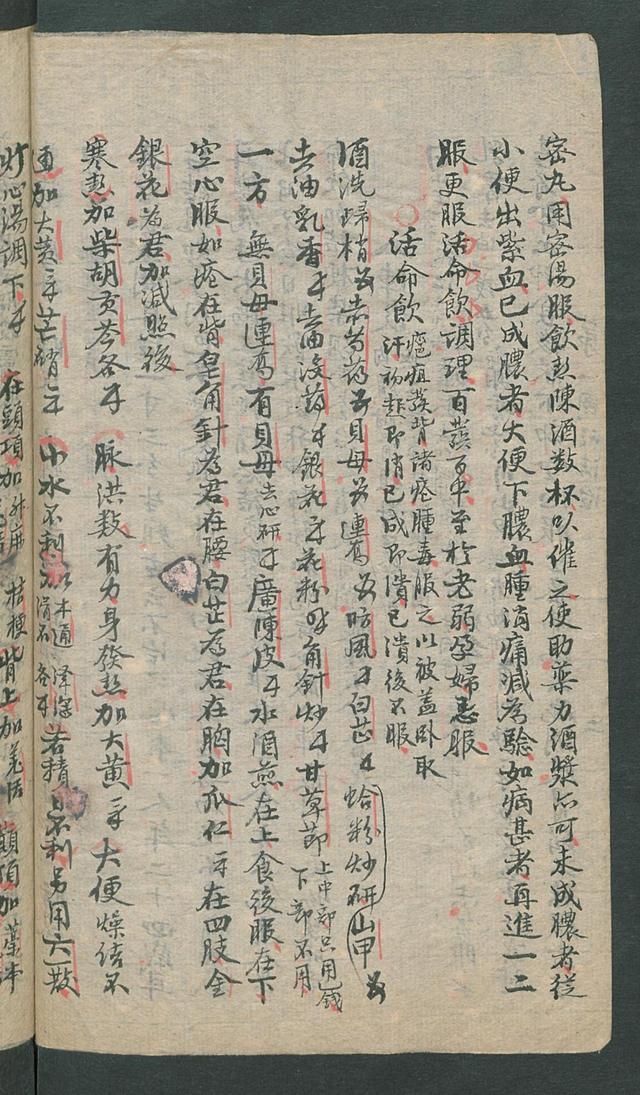 密丸用密湯服飲熱陳酒数杯以催之使助藥力酒漿亦可未成膿者從
小便出紫血已成膿者大便下膿血腫消痛減為驗如病甚者再進一二
服更服活命飲調理百發百中至於老弱孕婦忌服
活命飲 癰疽發背諸瘡腫毒服之以被盖卧取
汗初起即消已成即潰已潰後不服
酒洗歸梢 赤芍药 貝母 連喬 防風 白芷 蛤粉炒研山甲
去油乳香 去油没药 銀花 花粉 角針炒 甘草節 上中部只用 錢
下部不用
一方 無貝母連喬有貝母去心研 廣陳皮 水酒煎在上食後服在下
空心服如瘡在背皂角針為君在腰白芷為君在胸加瓜仁 在四肢金
銀花為君加減照後
寒熱加柴胡黄芩各 脉洪数有力身發熱加大黄 大便燥结不
通加大黄 芒硝 小水不利加木通 澤瀉
滑石 各 若精 不利另用六一散
心湯調下 在頭項加 桔梗背上加羌活 顛頂加藁本